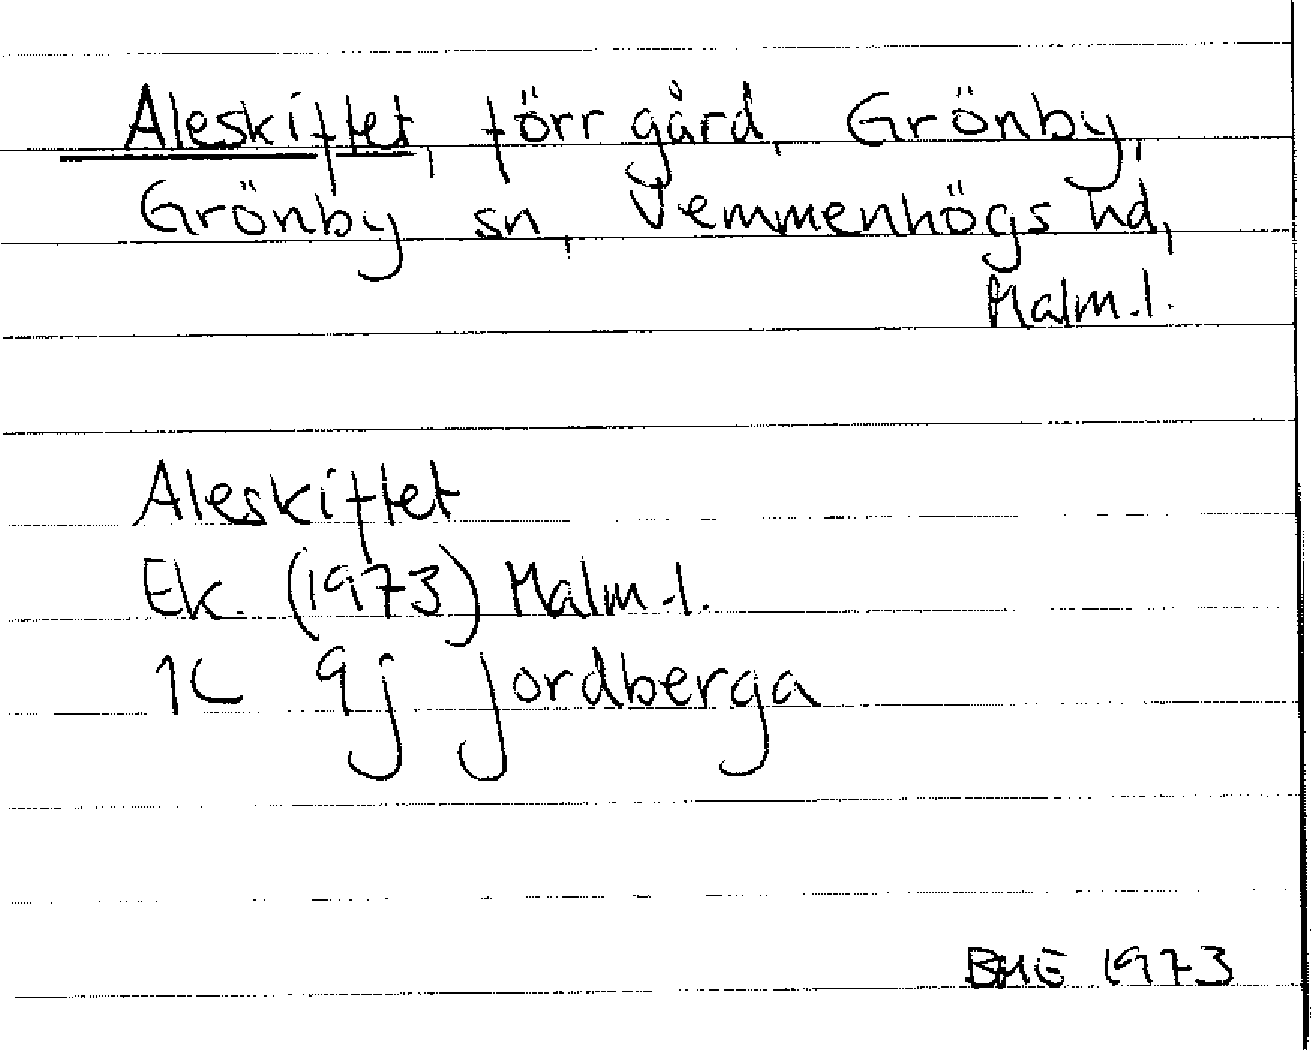 Aleskiftet, förr gård, Grönby,
Grönby sn, Vemmenhögs hd,
Malm.l.
Aleskiftet
Ek. (1973) Malm.l.
1C 9j Jordberga
BME 1973